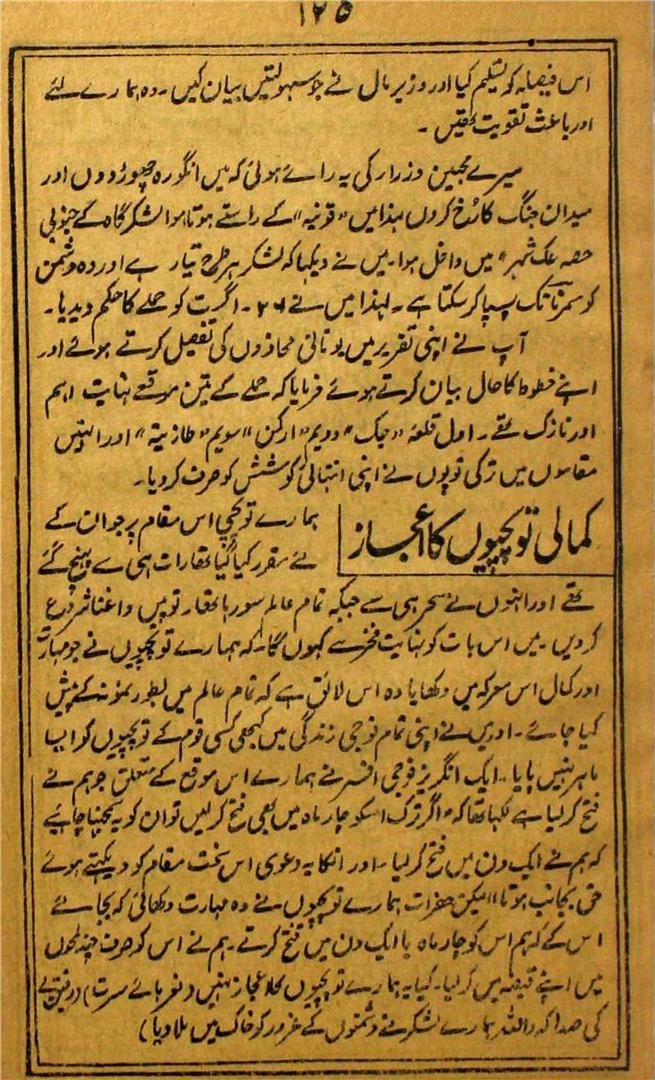 ۱۲۵
اس فیصلہ کو تسلیم کیا اور وزیر مال نے جو سہولتیں بیان کیں ۔ وہ ہمارے لئے
اور باعث تقویت تھیں ۔
میرے محبین وزراء کی یہ رائے ہوئی کہ میں انگورہ چھوڑ دوں اور
میدان جنگ کا رُخ کروں لہذا میں "قونیہ" کے راستے ہوتا ہوا لشکر گاہ کے جنوبی
حصہ عک شہر" میں داخل ہوا۔ میں نے دیکہا کہ لشکر ہر طرح تیار ہے اور وہ دشمن
کو سمرنا تک پسپا کر سکتا ہے ۔ لہذا میں نے ۲۶ ۔ اگست کو حملے کا حکم دیدیا ۔
آپ نے اپنی تقریر میں یونانی محاذوں کی تفصیل کرتے ہوئے اور
اپنے خطوط کا حال بیان کرتے ہوئے فرمایا کہ حملے کے تین موقعے نہایت اہم
اور نازک تھے ۔ اول قلعۂ "چک" دویم "ارکن" سویم "طازیتہ" اور انہیں
مقاموں میں ترکی توپوں نے اپنی انتہائی کوشش کو صرف کر دیا ۔
کمالی توپچیوں کا اعجاز
ہمارے توپچی اس مقام پر جو ان کے
لئے مقرر کیا گیا تھا رات ہی سے پہنچ گئے
تھے اور انہوں نے سحر ہی سے جبکہ تمام عالم سو رہا تھا توپیں داغنا شروع
کر دیں ۔ میں اس بات کو نہایت فخر سے کہوں گا ۔ کہ ہمارے توپچیوں نے جو مہارت
اور کمال اس معرکہ میں دکھایا وہ اس لائق ہے کہ تمام عالم میں بطور نمونہ کے پیش
کیا جائے ۔ اور میں نے اپنی تمام فوجی زندگی میں کبھی کسی قوم کے توپچیوں کو ایسا
ماہر نہیں پایا ۔ ایک انگریز فوجی افسر نے ہمارے اس موقع کے متعلق جو ہم نے
فتح کر لیا ہے لکہا تھا کہ "اگر ترک اسکو چار ماہ میں بھی فتح کر لیں تو ان کو یہ سمجہنا چاہئیے
کہ ہم نے ایک دن میں فتح کر لیا ۔ اور انکا یہ دعوی اس سخت مقام کو دیکہتے ہوئے
حق بجانب ہوتا" لیکن حضرات ہمارے توپچیوں نے وہ مہارت دکھائی کہ بجائے
اس کے کہ ہم اس کو چار ماہ یا ایک دن میں فتح کرتے ۔ ہم نے اس کو صرف چند گھنٹوں
میں اپنے قبضہ میں کر لیا ۔ کیا یہ ہمارے توپچیوں کا اعجاز نہیں (نعرہائے مسرت)
کی صدا کہ واللہ ہمارے لشکر نے دشمنوں کے غرور کو خاک میں ملا دیا)